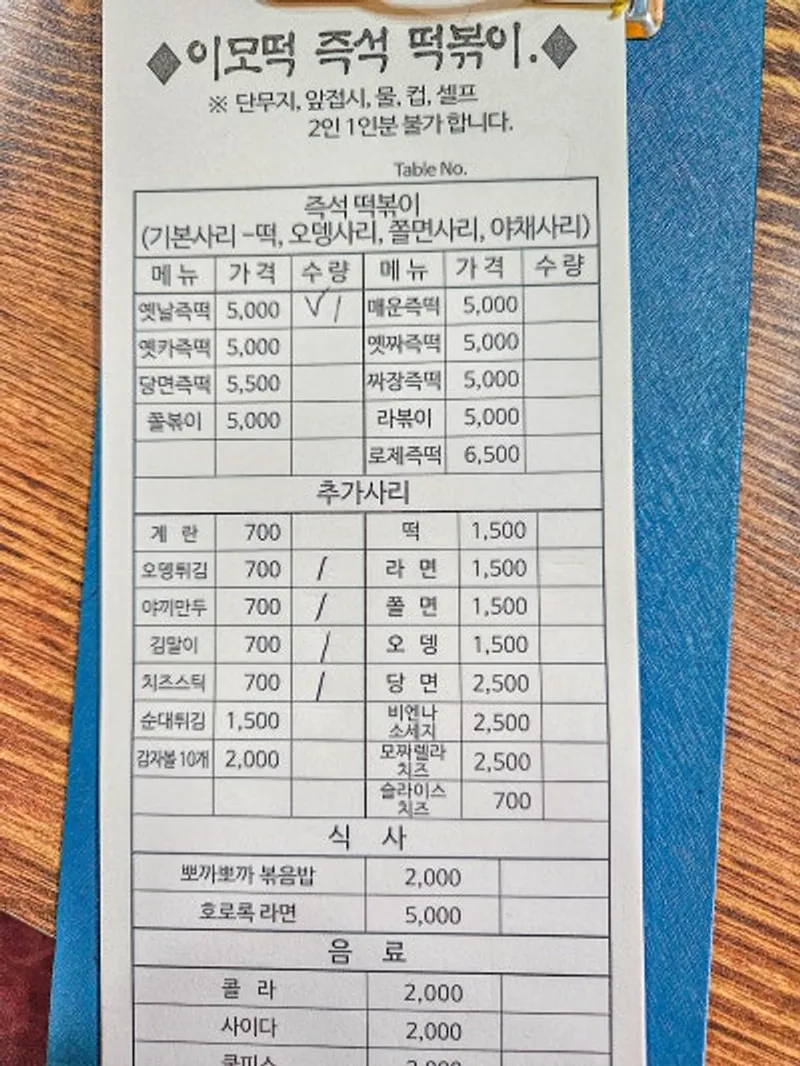 ◆이모떡 즉석 떡볶이.◆
※ 단무지, 앞접시, 물, 컵, 셀프
2인 1인분 불가 합니다.
Table No.
즉석 떡볶이
(기본사리 -떡, 오뎅사리, 쫄면사리, 야채사리)
메뉴 가격 수량 메뉴 가격 수량
옛날즉떡 5,000 √ / 매운즉떡 5,000
옛카즉떡 5,000 옛짜즉떡 5,000
당면즉떡 5,500 짜장즉떡 5,000
쫄볶이 5,000 라볶이 5,000
로제즉떡 6,500
추가사리
계 란 700 떡 1,500
오뎅튀김 700 / 라 면 1,500
야끼만두 700 / 쫄 면 1,500
김말이 700 / 오 뎅 1,500
치즈스틱 700 / 당 면 2,500
순대튀김 1,500 비엔나 소세지 2,500
감자볼 10개 2,000 모짜렐라 치즈 2,500
슬라이스 치즈 700
식 사
뽀까뽀까 볶음밥 2,000
호로록 라면 5,000
음 료
콜 라 2,000
사이다 2,000